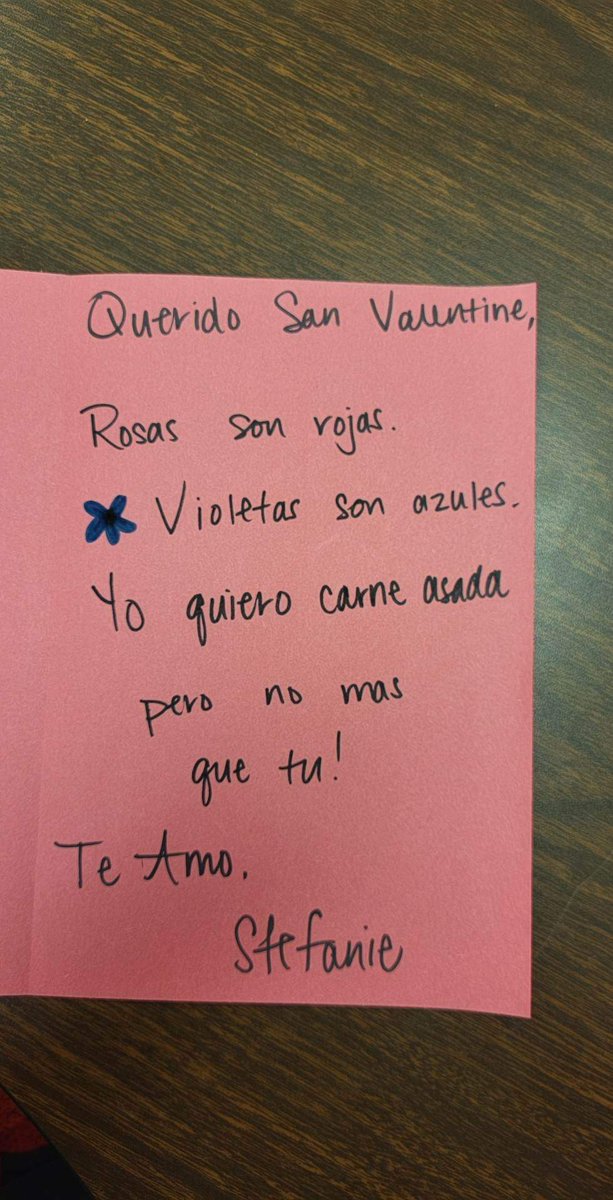 Querido San Valentine,
Rosas son rojas.
Violetas son azules.
Yo quiero carne asada
pero no mas
que tu!
Te Amo.
Stefanie